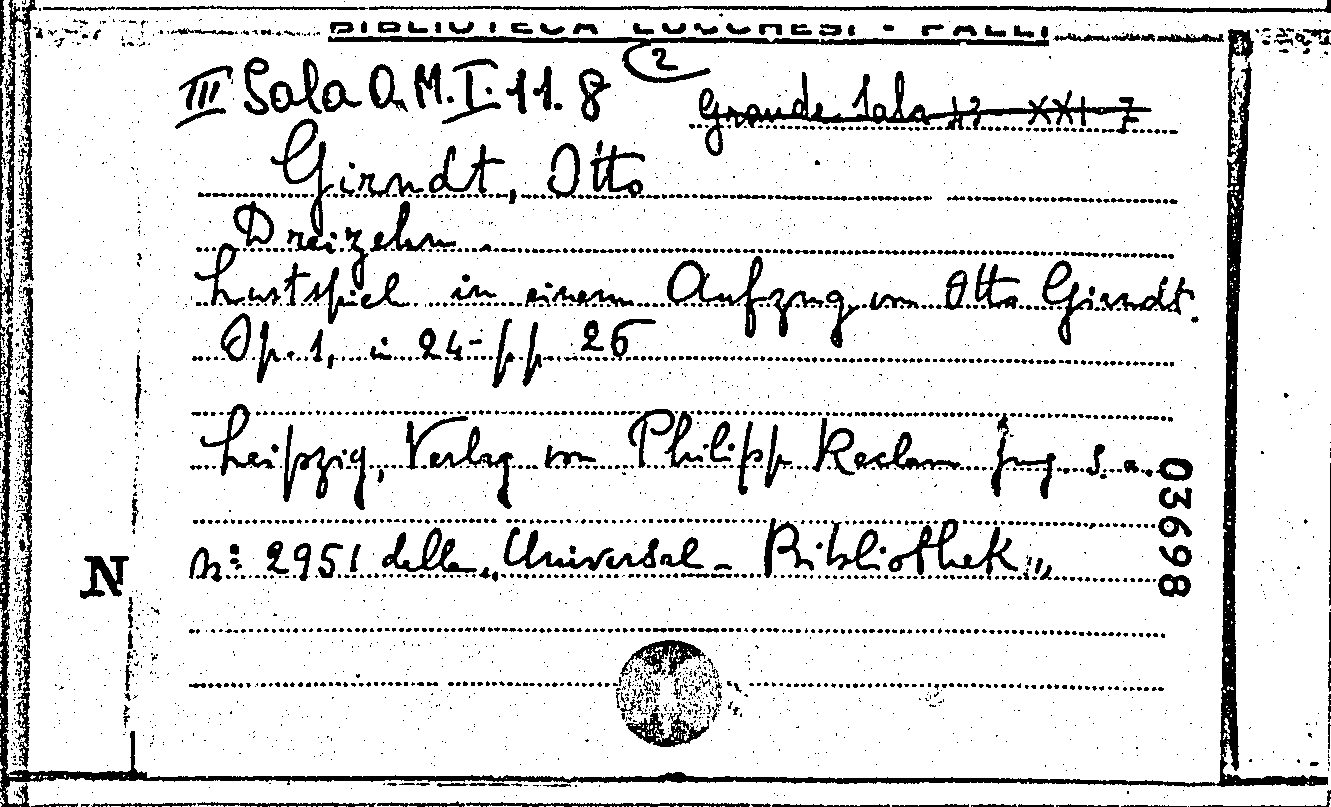 BIBLIOTECA LUCCHESI - PALLI
III Sala O. M. I. 11. 8 (2
Grande Sala 43 XXI 7
Girndt, Otto
Dreizehn.
Lustspiel in einem Aufzug von Otto Girndt.
Op. 1, in 24- pp 26
Leipzig, Verlag von Philipp Reclam jung. s. a.
03698
N
n: 2951 della „Universal - Bibliothek„